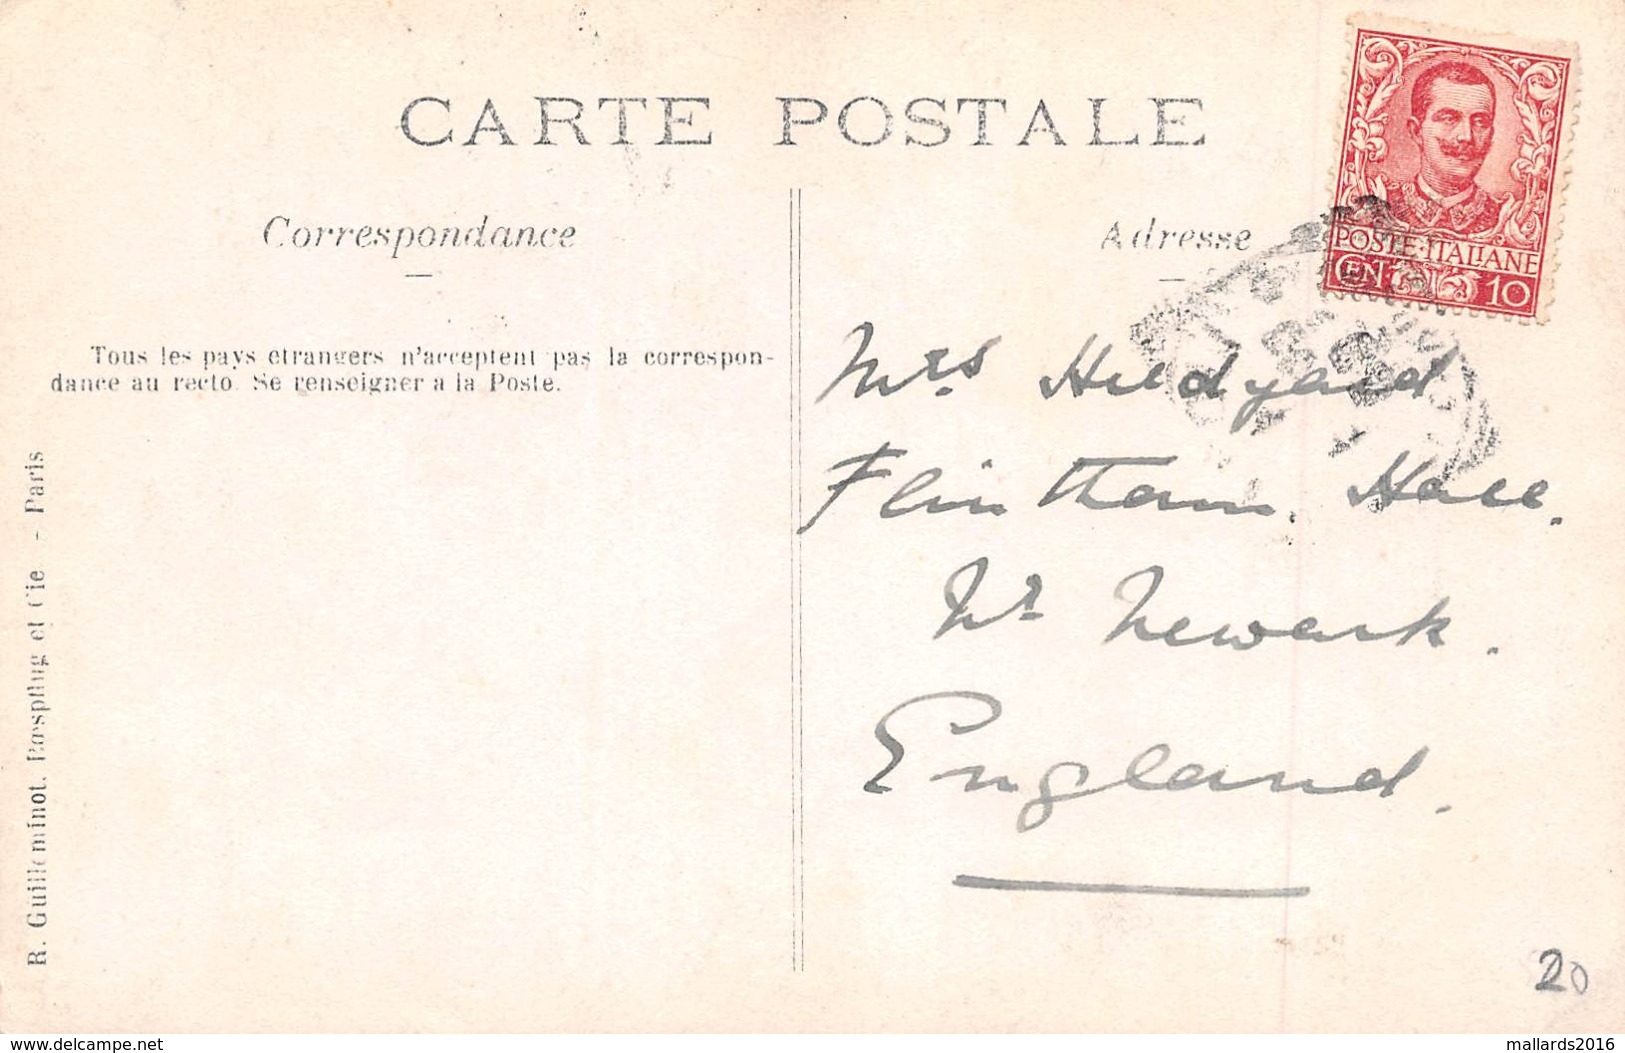 CARTE POSTALE
Correspondance
Adresse
Tous les pays etrangers n'acceptent pas la correspon-
dance au recto. Se renseigner a la Poste.
R. Guilleminot, Bœspflug et Cie - Paris
POSTE·ITALIANE
CEN 10
Mrs Hildyard
Flintham Hall.
Nr Newark.
England.
20
delcampe.net
mallards2016